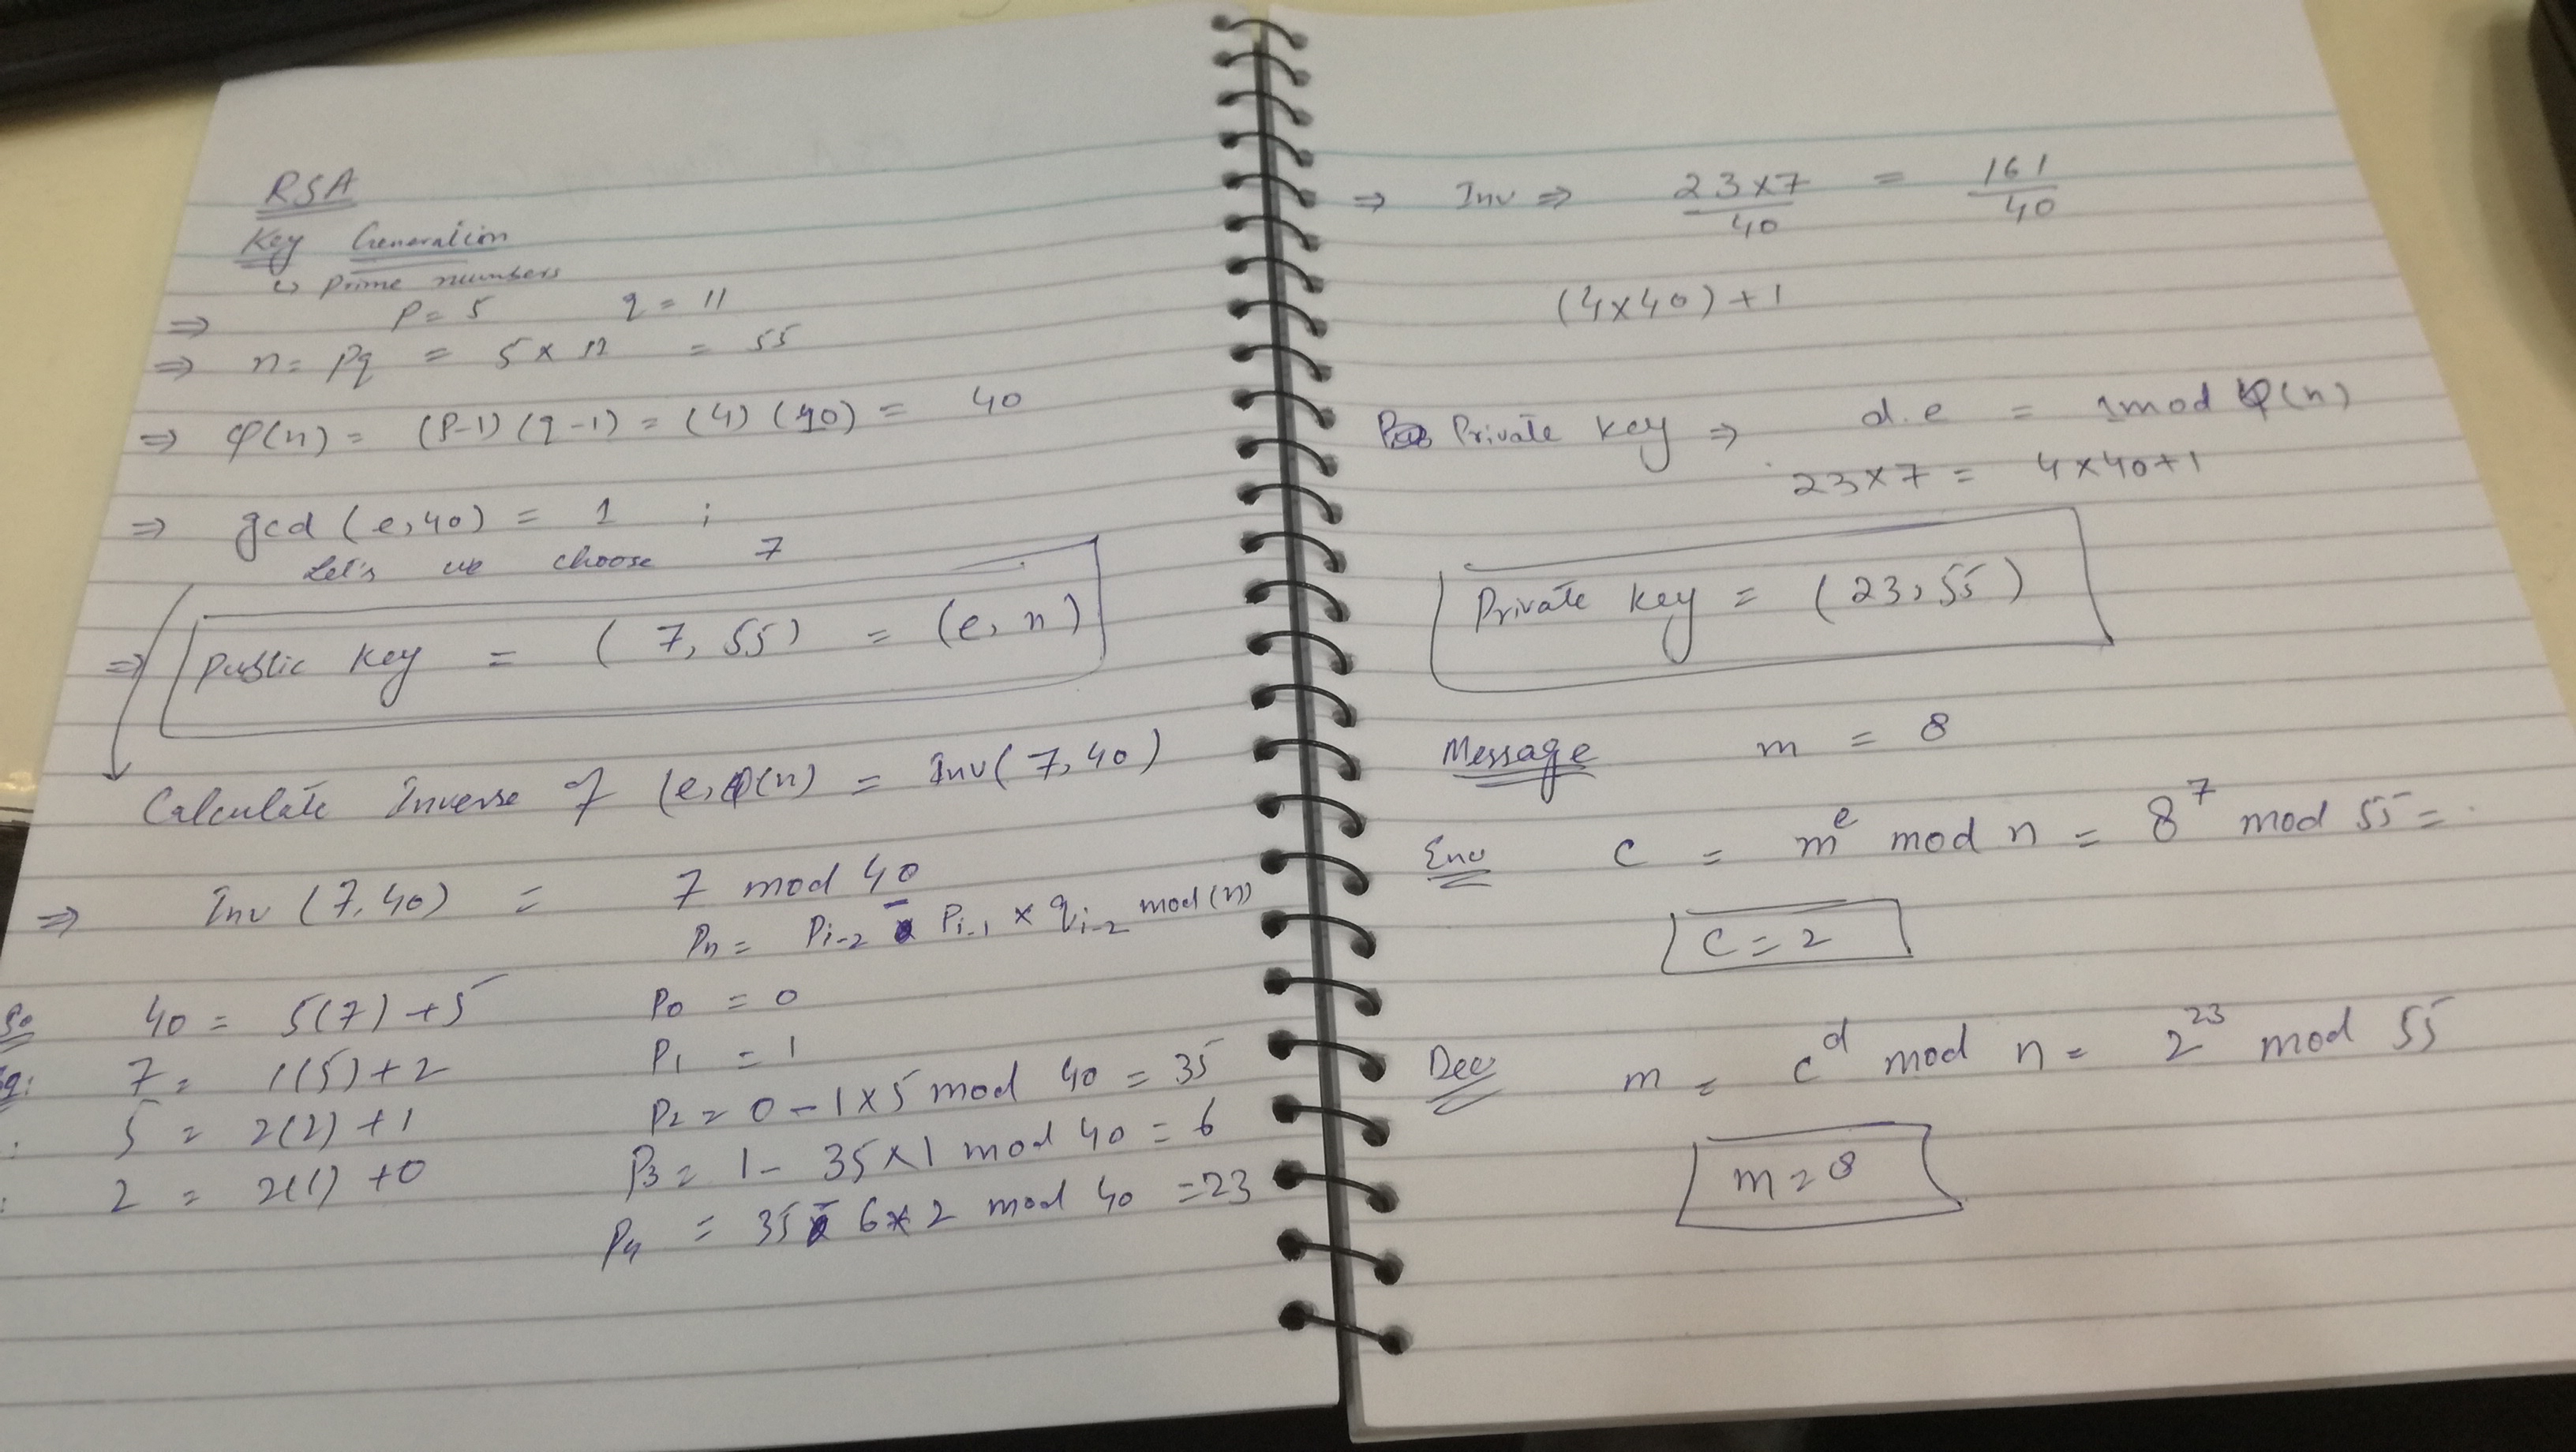 RSA
Key Generation
↳ Prime numbers
⇒ P = 5 q = 11
⇒ n = pq = 5 x 11 = 55
⇒ φ(n) = (P-1)(q-1) = (4)(10) = 40
⇒ gcd(e,40) = 1 ;
Let's we choose 7
⇒ Public Key = (7, 55) = (e, n)
Calculate Inverse of (e, φ(n) = Inv(7,40)
⇒ Inv (7,40) = 7 mod 40
Pn = Pi-2 - Pi-1 x qi-2 mod(n)
40 = 5(7)+5 P0 = 0
7 = 1(5)+2 P1 = 1
5 = 2(2)+1 P2 = 0-1x5 mod 40 = 35
2 = 2(1)+0 P3 = 1- 35x1 mod 40 = 6
P4 = 35 - 6*2 mod 40 = 23
⇒ Inv ⇒ 23x7/40 = 161/40
(4x40)+1
Private Key ⇒ d.e = 1mod φ(n)
23x7 = 4x40+1
Private Key = (23,55)
Message m = 8
Enc c = m^e mod n = 8^7 mod 55 =
C = 2
Dec m = c^d mod n = 2^23 mod 55
m = 8